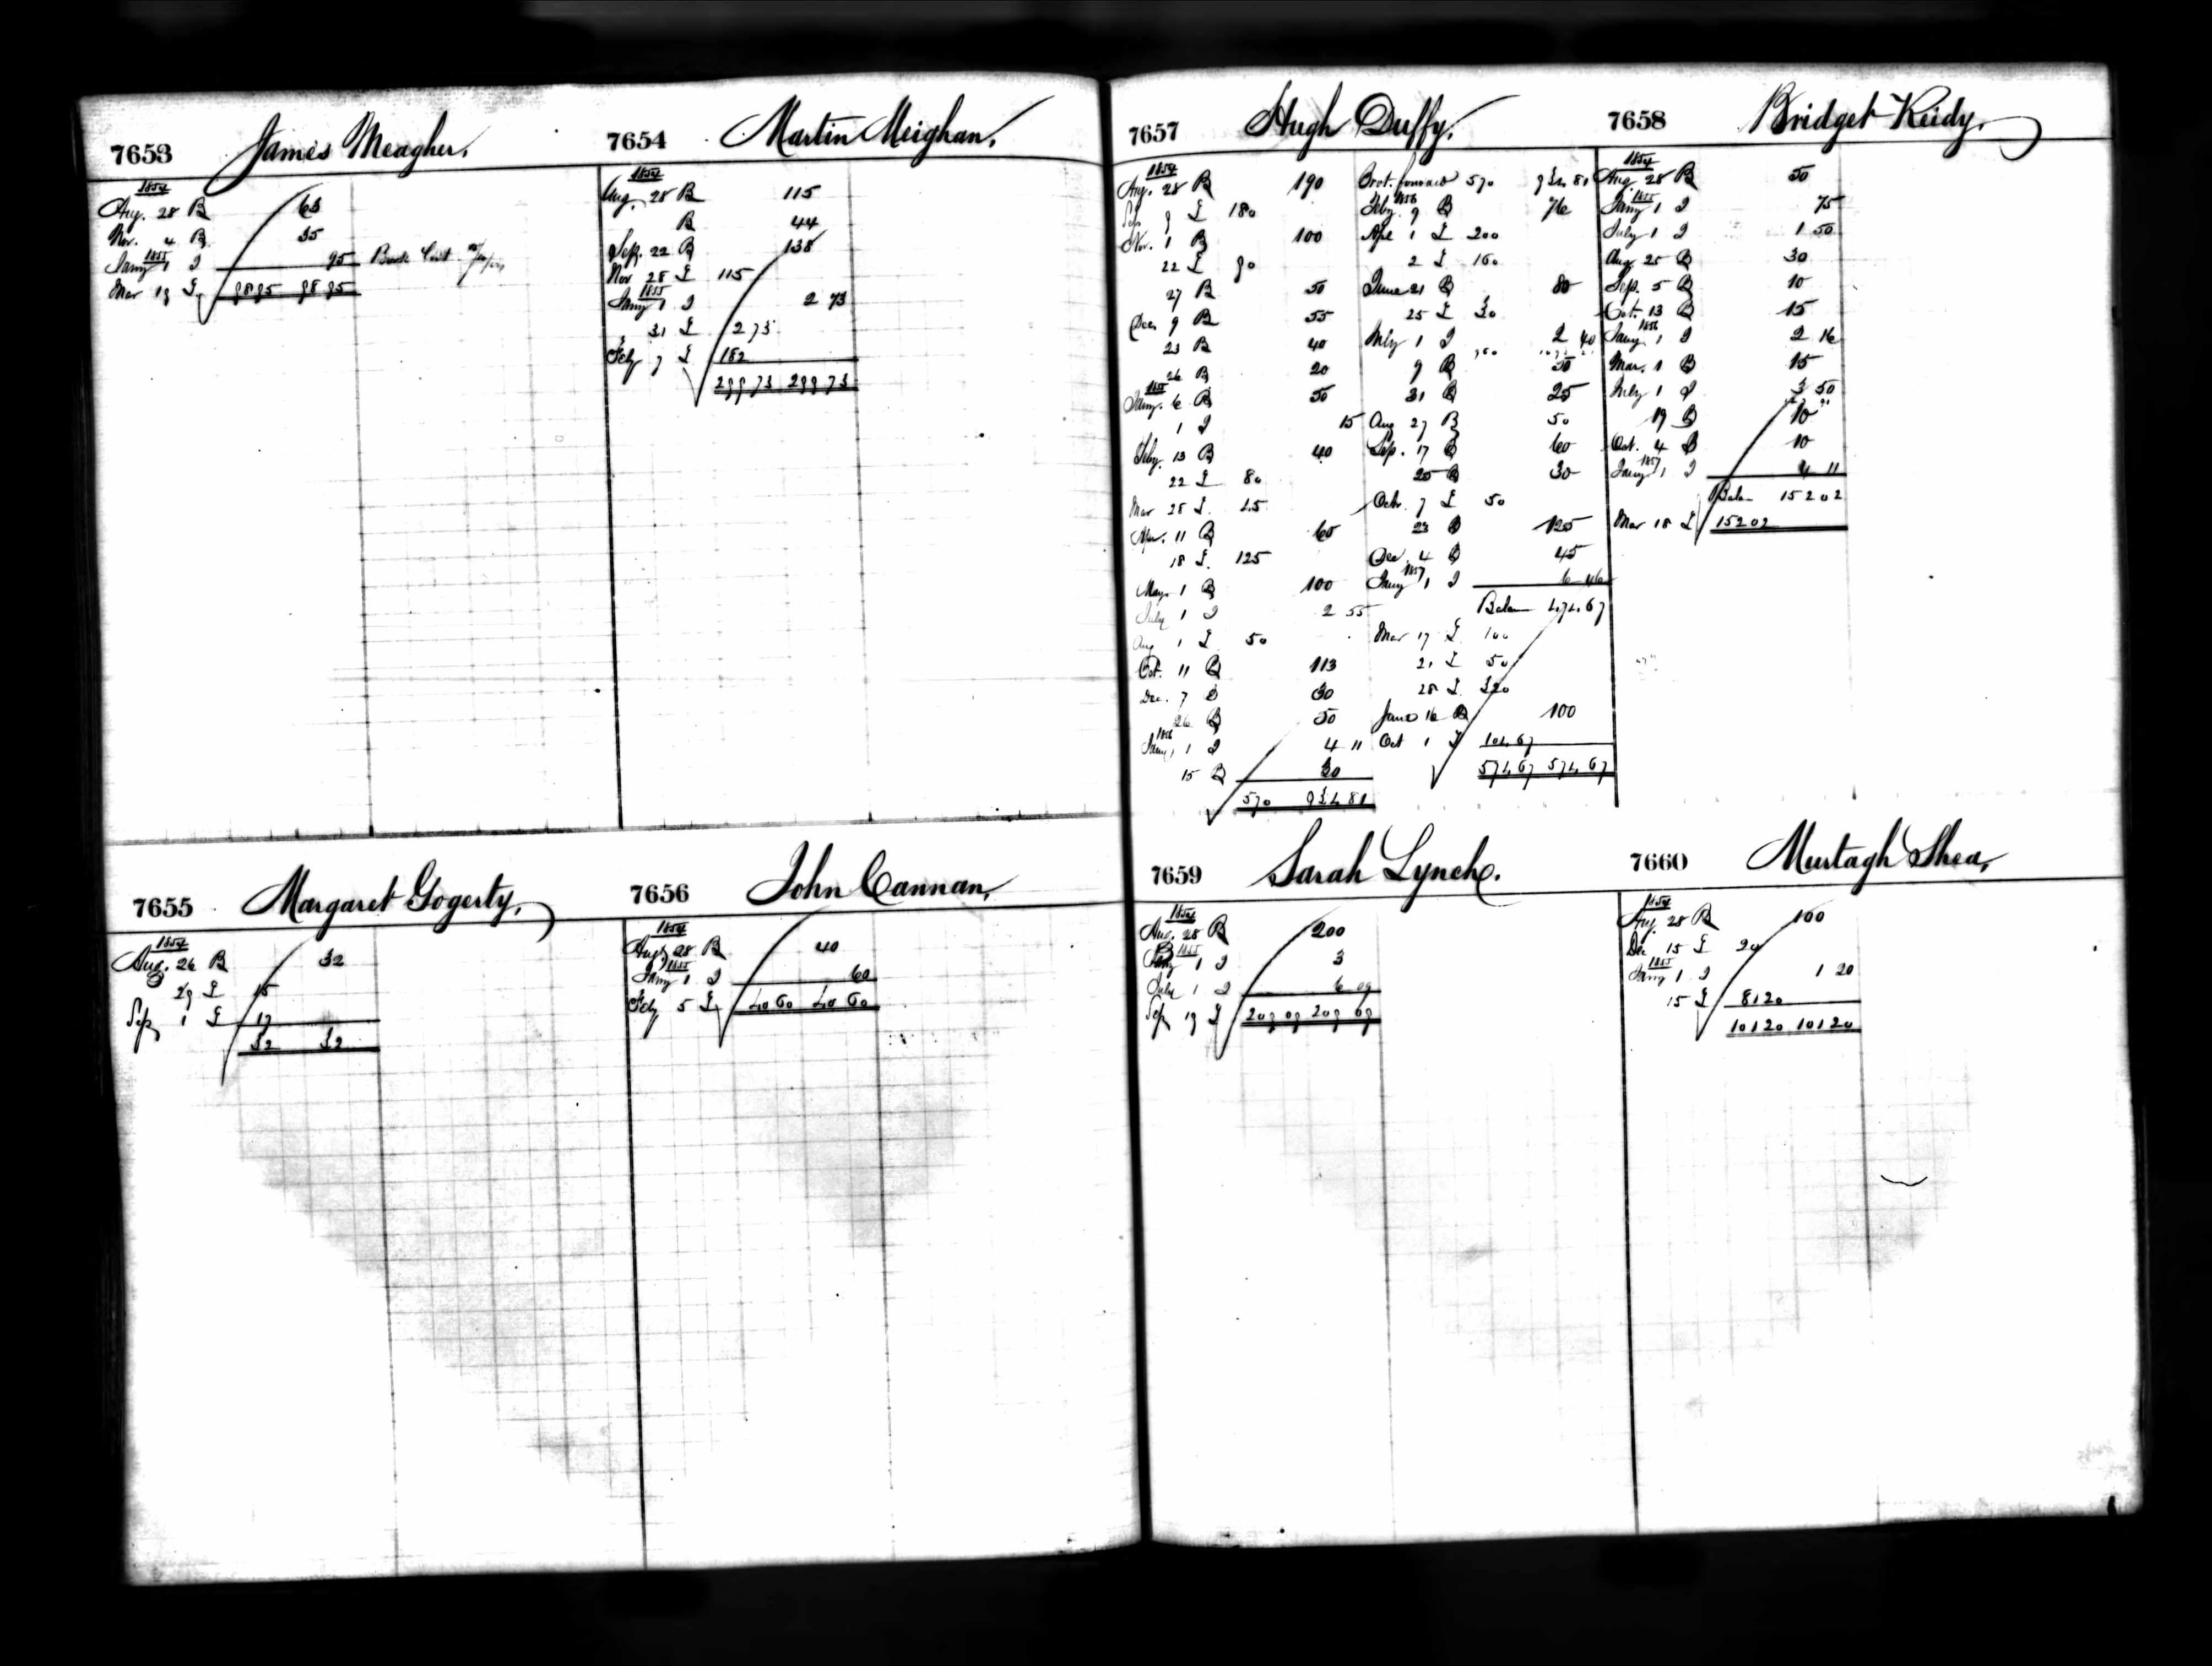 7653 James Meagher.
1854
Aug. 28 B 63
Nov. 4 B 35
1855
Jany 1 I 95 Book Lost
Mar 19 L 98 95 98 95
7654 Martin Meighan.
1854
Aug. 28 B 115
B 44
Sep. 22 B 138
Nov 28 L 115
1855
Jany 1 I 2 73
31 L 2 73
Feby 7 L 182
299 73 299 73
7655 Margaret Gogerty,
1854
Aug. 26 B 32
29 L 15
Sep 1 L 17
32 32
7656 John Cannan,
1854
Augt 28 B 40
1855
Jany 1 I 60
Feby 5 L 40 60 40 60
7657 Hugh Duffy.
1854
Aug. 28 B 190
Sep 9 L 180
Nov. 1 B 100
22 L 90
27 B 50
Dec. 9 B 55
23 B 40
26 B 20
1855
Jany. 6 B 50
1 I 15
Feby. 13 B 40
22 L 80
Mar 28 L 25
Apr. 11 B 65
18 L 125
May 1 B 100
July 1 I 2 55
Aug 1 L 50
Oct. 11 B 113
Dec. 7 B 30
26 B 50
1856
Jany 1 I 4 11
15 B 30
570 934 81
Brot. forward 570 934 81
1856
Feby. 9 B 76
Apl 1 L 200
2 L 160
June 21 B 80
25 L 30
July 1 I 2 40
9 B 50
31 B 25
Aug 27 B 50
Sep. 17 B 60
25 B 30
Octr. 7 L 50
23 B 125
Dec. 4 B 45
1857
Jany 1 I 6 46
Balan 474 67
Mar 17 L 100
21 L 50
28 L 320
June 16 B 100
Oct 1 L 104 67
574 67 574 67
7658 Bridget Keidy.
1854
Aug. 28 B 50
1855
Jany 1 I 75
July 1 I 1 50
Aug 25 B 30
Sep. 5 B 10
Oct. 13 B 15
1856
Jany 1 I 2 16
Mar. 1 B 15
July 1 I 3 50
19 B 10
Oct. 4 B 10
1857
Jany 1 I 4 11
Balan 152 02
Mar 18 L 152 02
7659 Sarah Lynch.
1854
Aug. 28 B 200
1855
Jany 1 I 3
July 1 I 6 09
Sep 19 L 209 09 209 09
7660 Murtagh Shea,
1854
Aug. 28 B 100
Dec 15 L 20
1855
Jany 1 I 1 20
15 L 81 20
101 20 101 20